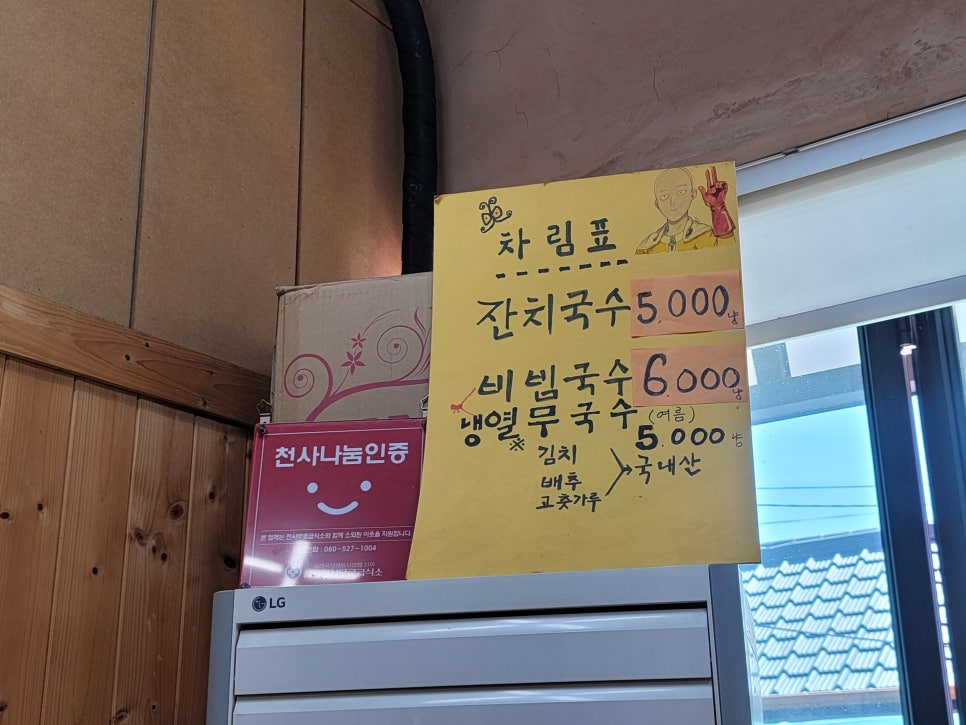 차림표
잔치국수 5,000냥
비빔국수 6,000냥
냉열무국수 (여름) 5,000냥
※ 김치
배추
고춧가루
국내산
천사나눔인증
본 업체는 천사무료급식소와 함께 소외된 이웃을 지원합니다.
전화 : 080-527-1004
LG